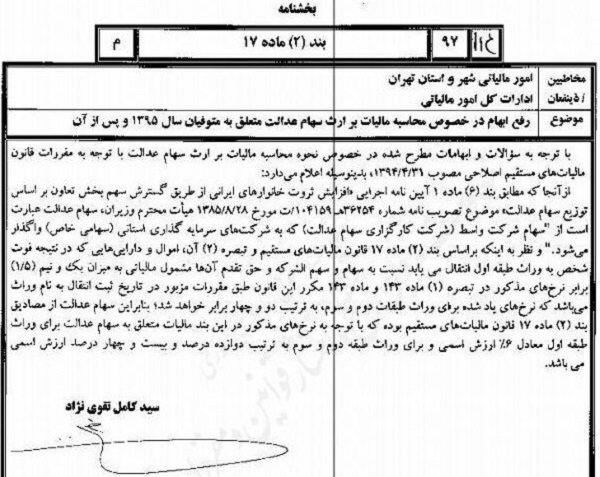 بخشنامه
۹۷ بند (۲) ماده ۱۷ م
مخاطبین امور مالیاتی شهر و استان تهران
/ ذینفعان ادارات کل امور مالیاتی
موضوع رفع ابهام در خصوص محاسبه مالیات بر ارث سهام عدالت متعلق به متوفیان سال ۱۳۹۵ و پس از آن
با توجه به سؤالات و ابهامات مطرح شده در خصوص نحوه محاسبه مالیات بر ارث سهام عدالت با توجه به مقررات قانون
مالیات‌های مستقیم اصلاحی مصوب ۱۳۹۴/۴/۳۱، بدینوسیله اعلام می‌دارد:
ازآنجا که مطابق بند (۶) ماده ۱ آیین نامه اجرایی «افزایش ثروت خانوارهای ایرانی از طریق گسترش سهم بخش تعاون بر اساس
توزیع سهام عدالت» موضوع تصویب نامه شماره ۱۰۴۱۵۹/ت۳۶۲۵۴هـ مورخ ۱۳۸۵/۸/۲۸ هیأت محترم وزیران، سهام عدالت عبارت
است از "سهام شرکت واسط (شرکت کارگزاری سهام عدالت) که به شرکت‌های سرمایه گذاری استانی (سهامی خاص) واگذار
می‌شود." و نظر به اینکه براساس بند (۲) ماده ۱۷ قانون مالیات‌های مستقیم و تبصره (۲) آن، اموال و دارایی‌هایی که در نتیجه فوت
شخص به وراث طبقه اول انتقال می یابد نسبت به سهام و سهم الشرکه و حق تقدم آن‌ها مشمول مالیاتی به میزان یک و نیم (۱/۵)
برابر نرخ‌های مذکور در تبصره (۱) ماده ۱۴۳ و ماده ۱۴۳ مکرر این قانون طبق مقررات مزبور در تاریخ ثبت انتقال به نام وراث
می‌باشد که نرخ‌های یاد شده برای وراث طبقات دوم و سوم، به ترتیب دو و چهار برابر خواهد شد؛ بنابراین سهام عدالت از مصادیق
بند (۲) ماده ۱۷ قانون مالیات‌های مستقیم بوده که با توجه به نرخ‌های مذکور در این بند مالیات متعلق به سهام عدالت برای وراث
طبقه اول معادل ۶٪ ارزش اسمی و برای وراث طبقه دوم و سوم به ترتیب دوازده درصد و بیست و چهار درصد ارزش اسمی
می باشد.
سید کامل تقوی نژاد